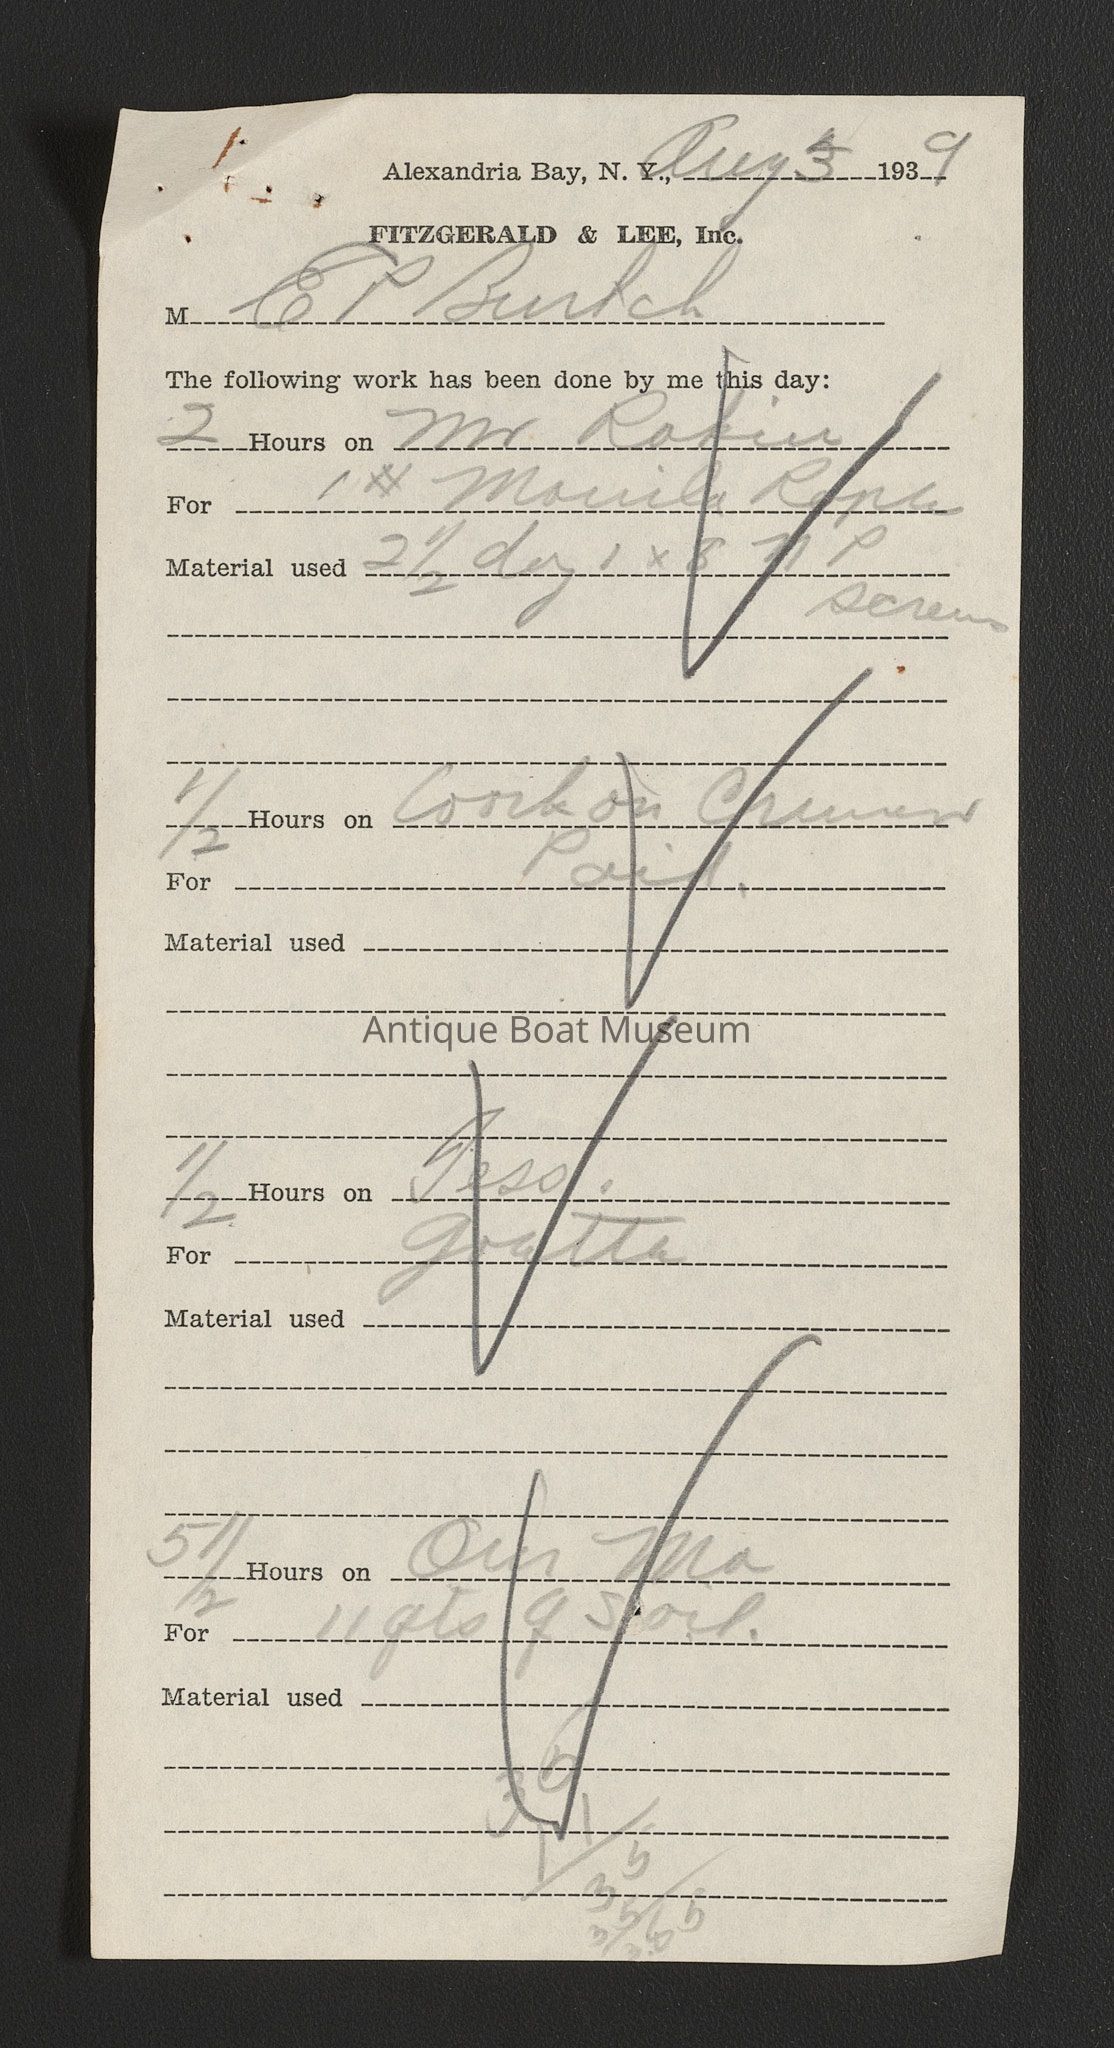 Alexandria Bay, N. Y., Aug 193 9
FITZGERALD & LEE, Inc.
M E P Burtch
The following work has been done by me this day:
2 Hours on Mr Robin
For 1 # Manila Rope
Material used 2 1/2 doz 1 x 8 N P
screws
1/2 Hours on Work on
For Paid.
Material used
Antique Boat Museum
1/2 Hours on Tess.
For
Material used
5 1/2 Hours on Our Ma
For 11 qts of S oil.
Material used